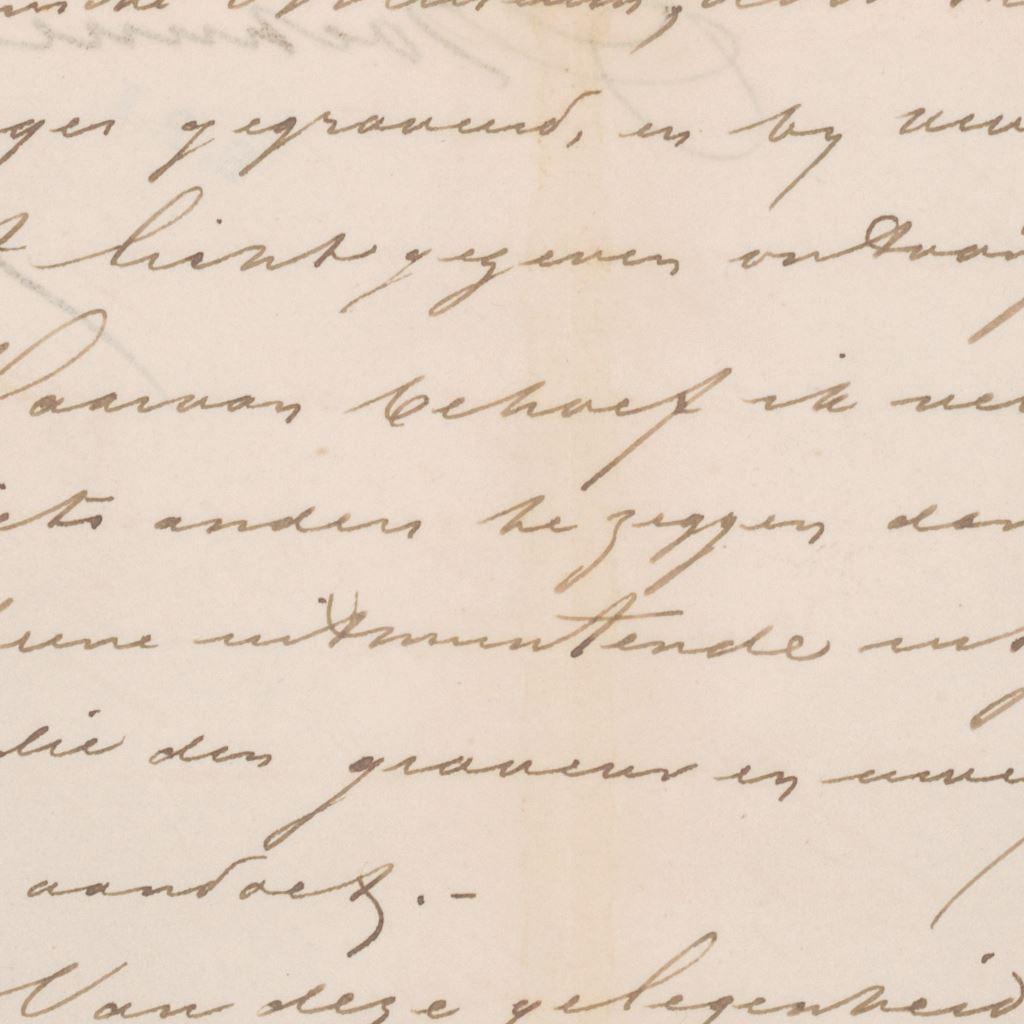 ger gegraveerd, en by uw
licht gegeven ontvan
Daarvan behoef ik
iets anders te zeggen dan
uitmuntende
die den graveur en uwe
aandoet. –
Van deze gelegenheid